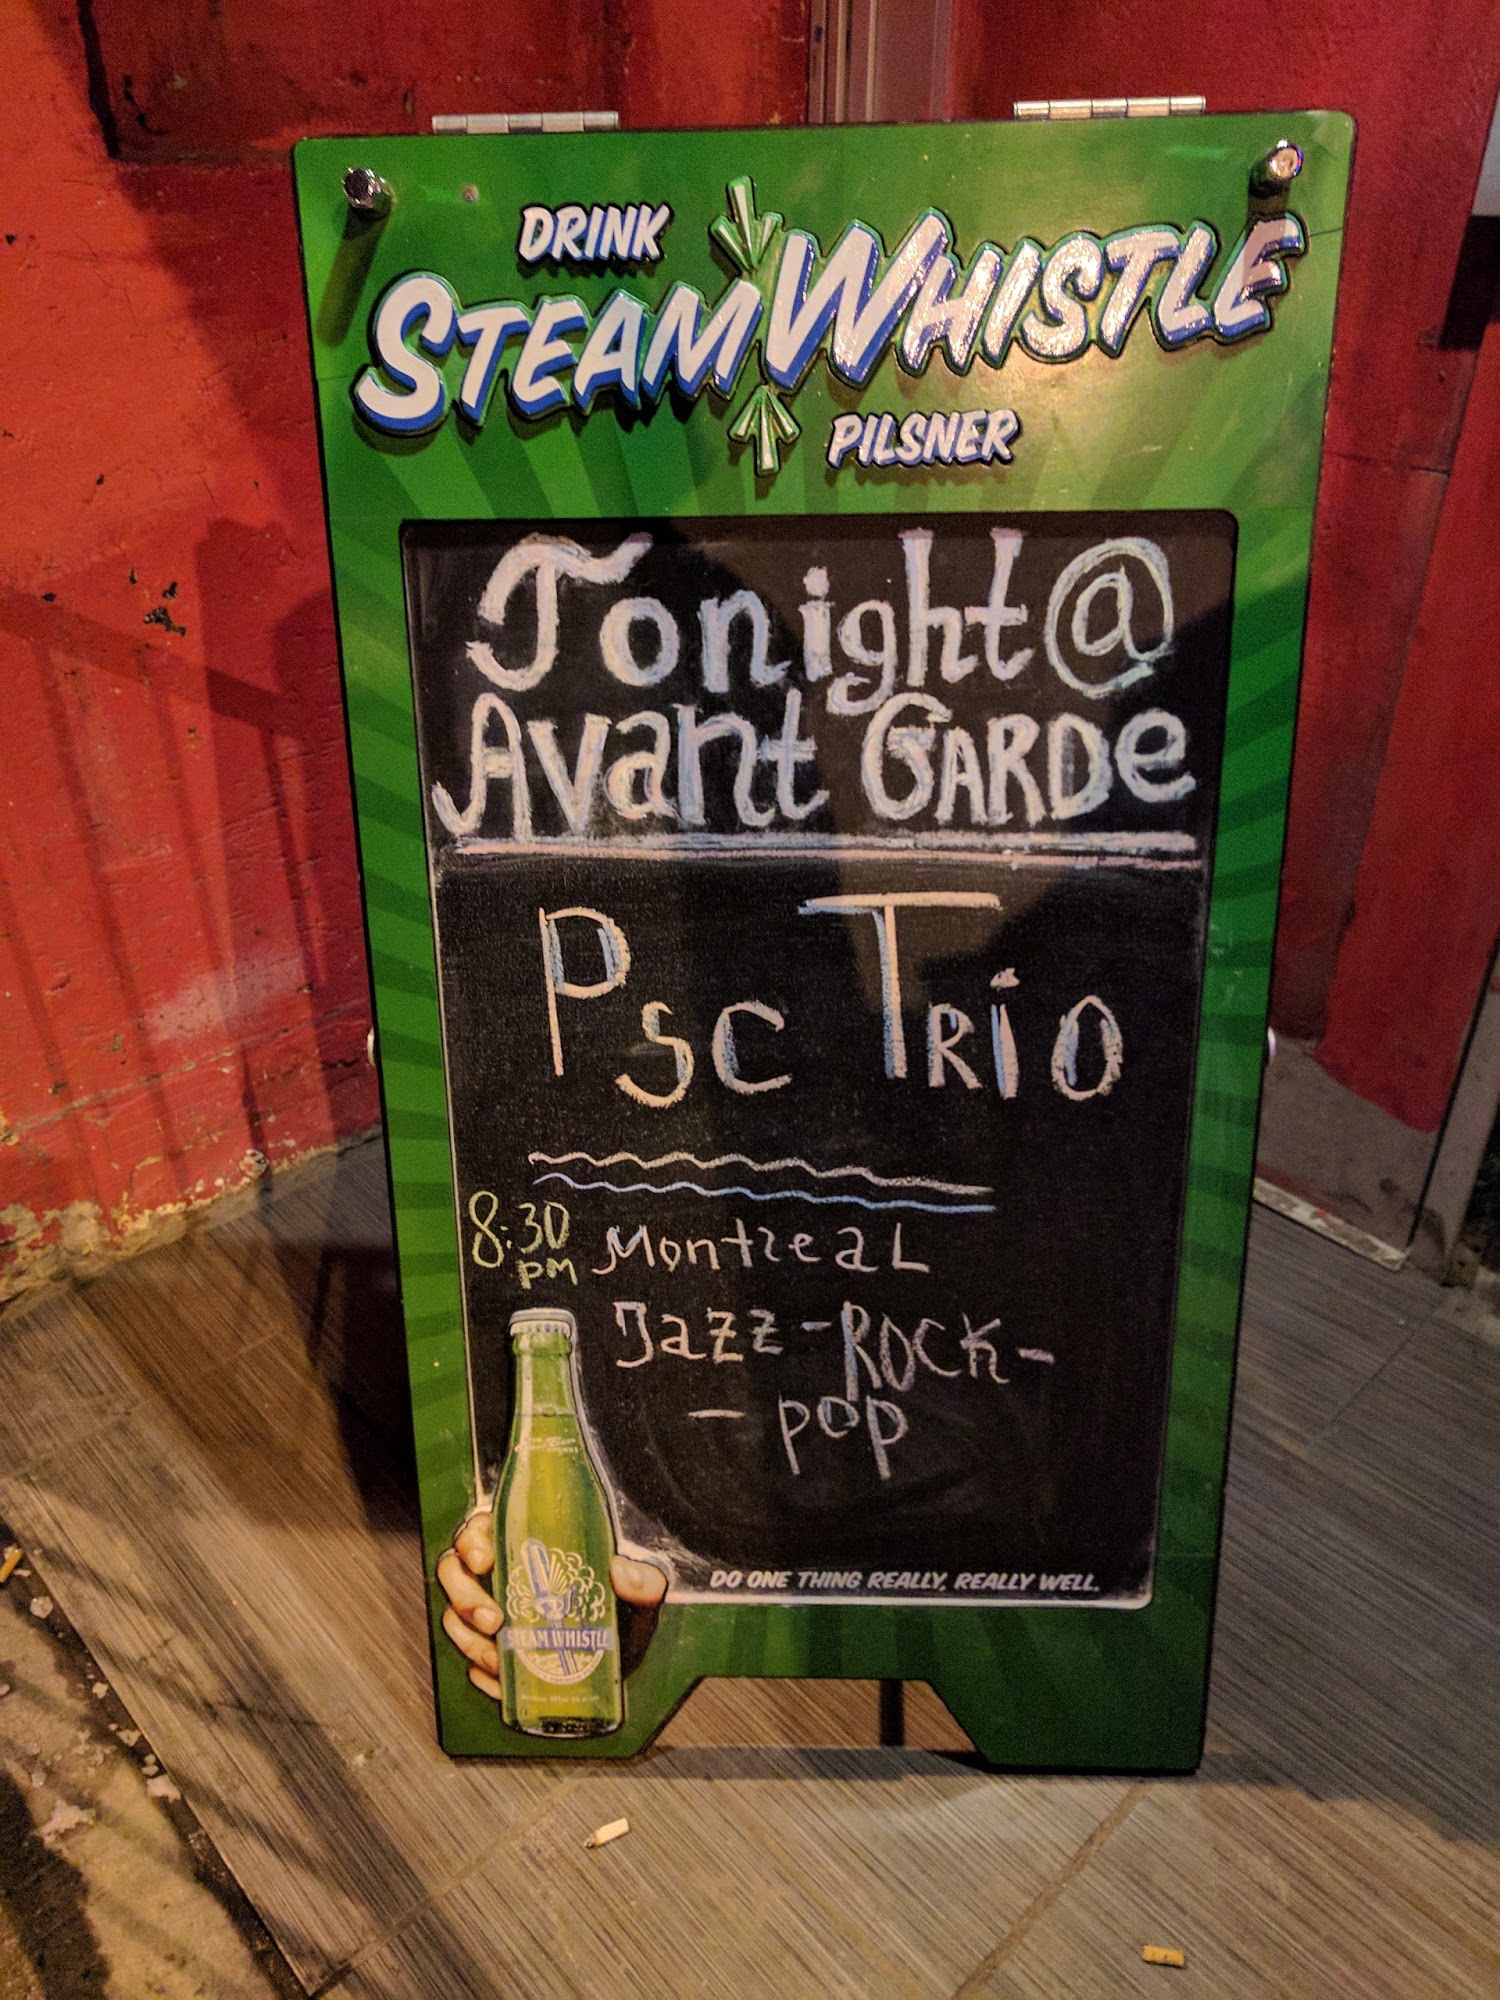 DRINK
STEAM WHISTLE
PILSNER
Tonight @
Avant GARDe
Psc TRiO
8:30
pm
MontreaL
Jazz - ROCK -
- pop
STEAM WHISTLE
DO ONE THING REALLY, REALLY WELL.